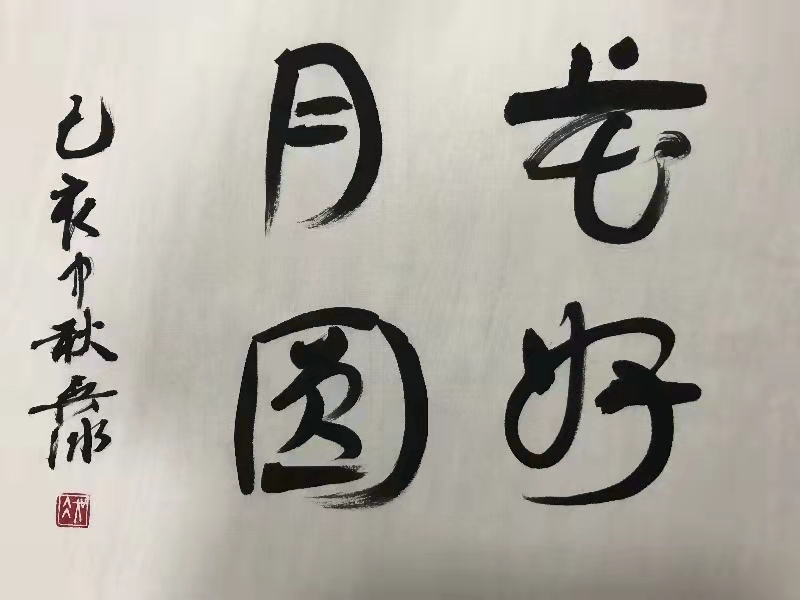 花好
月圆
己亥中秋